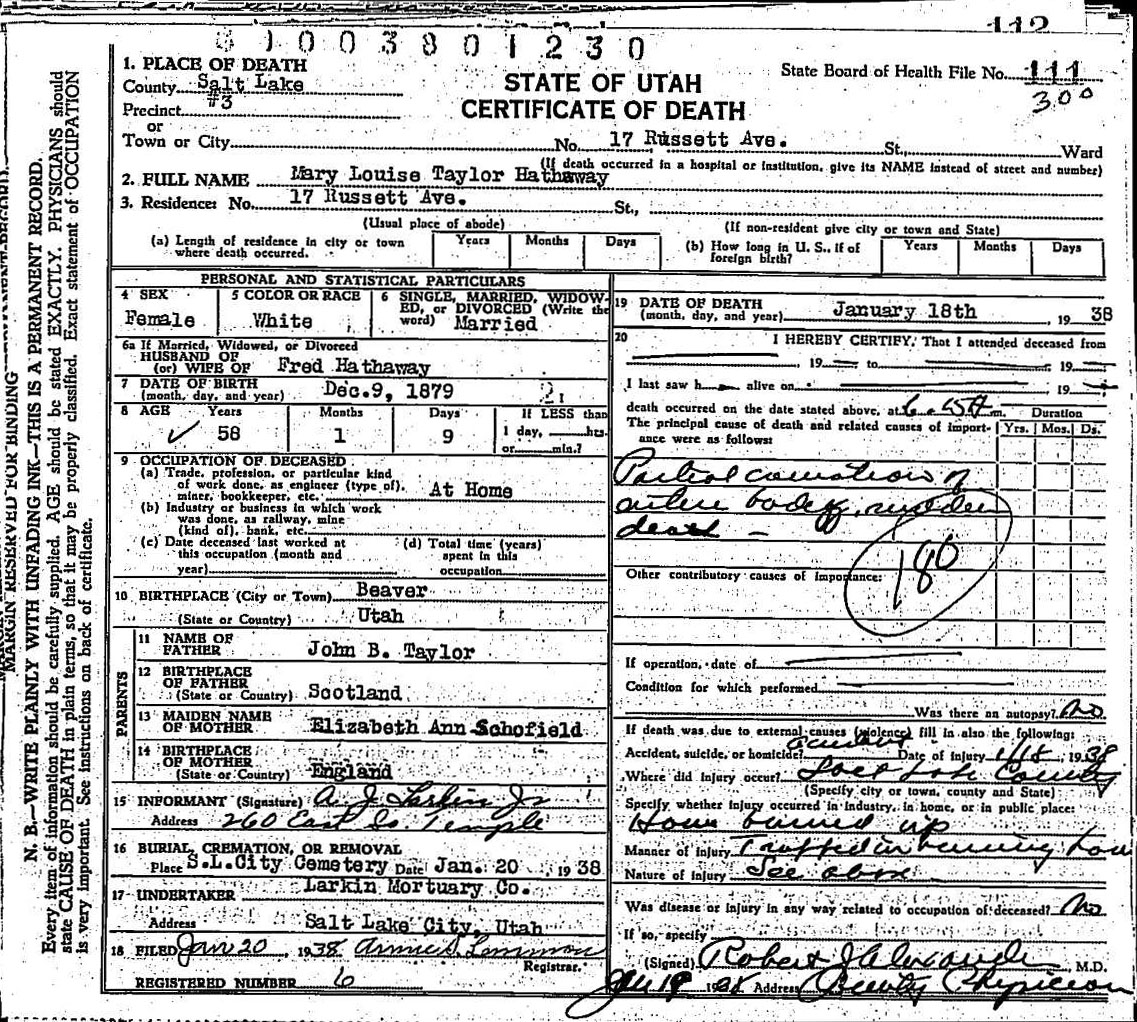 112
8 1 0 0 3 8 0 1 2 3 0
1. PLACE OF DEATH
County Salt Lake
Precinct #3
or
Town or City
STATE OF UTAH
CERTIFICATE OF DEATH
State Board of Health File No. 111
300
No. 17 Russett Ave. St., Ward
(If death occurred in a hospital or institution, give its NAME instead of street and number)
2. FULL NAME Mary Louise Taylor Hathaway
3. Residence: No. 17 Russett Ave. St.,
(Usual place of abode) (If non-resident give city or town and State)
(a) Length of residence in city or town where death occurred. Years Months Days
(b) How long in U. S., if of foreign birth? Years Months Days
PERSONAL AND STATISTICAL PARTICULARS
4 SEX
Female
5 COLOR OR RACE
White
6 SINGLE, MARRIED, WIDOW-
ED, or DIVORCED (Write the
word) Married
6a If Married, Widowed, or Divorced
HUSBAND OF
(or) WIFE OF Fred Hathaway
7 DATE OF BIRTH
(month, day, and year) Dec.9, 1879
21
8 AGE Years Months Days If LESS than
58 1 9 1 day, hrs.
or min.?
9 OCCUPATION OF DECEASED
(a) Trade, profession, or particular kind
of work done, as engineer (type of),
miner, bookkeeper, etc. At Home
(b) Industry or business in which work
was done, as railway, mine
(kind of), bank, etc.
(c) Date deceased last worked at
this occupation (month and
year)
(d) Total time (years)
spent in this
occupation
10 BIRTHPLACE (City or Town) Beaver
(State or Country) Utah
PARENTS
11 NAME OF
FATHER John B. Taylor
12 BIRTHPLACE
OF FATHER
(State or Country) Scotland
13 MAIDEN NAME
OF MOTHER Elizabeth Ann Schofield
14 BIRTHPLACE
OF MOTHER
(State or Country) England
15 INFORMANT (Signature) A. J. Larkin Jr
Address 260 East So. Temple
16 BURIAL, CREMATION, OR REMOVAL
Place S.L.City Cemetery Date Jan. 20 1938
17 UNDERTAKER Larkin Mortuary Co.
Address Salt Lake City, Utah
18 FILED Jan 20, 1938
Registrar.
REGISTERED NUMBER 6
19 DATE OF DEATH
(month, day, and year) January 18th, 1938
20 I HEREBY CERTIFY, That I attended deceased from
19 to 19
I last saw h alive on 19
death occurred on the date stated above, at m. Duration
The principal cause of death and related causes of import-
ance were as follows: Yrs. Mos. Ds.
Partial cremation of
entire body, sudden
death —
180
Other contributory causes of importance:
If operation, date of
Condition for which performed
Was there an autopsy? No
If death was due to external causes (violence) fill in also the following:
Accident, suicide, or homicide? Accident Date of injury 1/18, 1938
Where did injury occur? Salt Lake County
(Specify city or town, county and State)
Specify whether injury occurred in industry, in home, or in public place:
Home burned up
Manner of injury Trapped in burning home
Nature of injury See above
Was disease or injury in any way related to occupation of deceased? No
If so, specify
(Signed) Robert J Alexander, M.D.
Jan 19 1938 Address County Physician
MARGIN RESERVED FOR BINDING
N. B.—WRITE PLAINLY WITH UNFADING INK—THIS IS A PERMANENT RECORD.
Every item of information should be carefully supplied. AGE should be stated EXACTLY. PHYSICIANS should
state CAUSE OF DEATH in plain terms, so that it may be properly classified. Exact statement of OCCUPATION
is very important. See instructions on back of certificate.